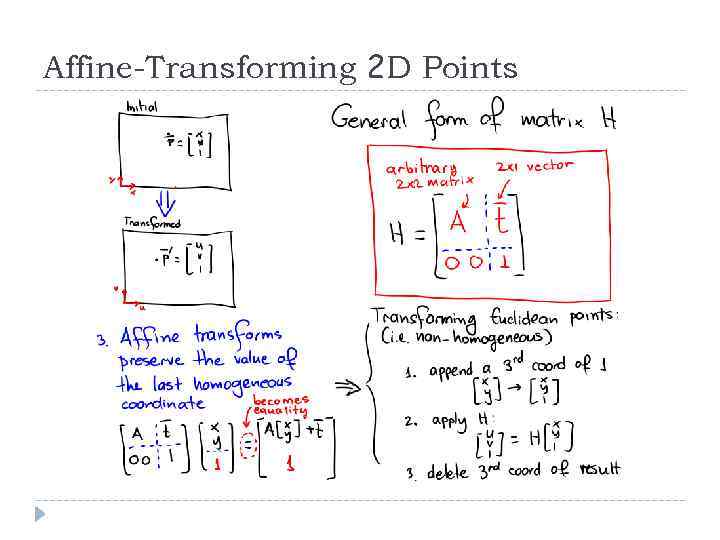 Affine-Transforming 2D Points
Initial
p̄ = [x y 1]
y
x
Transformed
p̄' = [u v 1]
v
u
General form of matrix H
arbitrary 2x2 matrix
2x1 vector
H = [A t̄
0 0 1]
3. Affine transforms
preserve the value of
the last homogeneous
coordinate
becomes
equality
[A t̄
0 0 1] [x y 1] = [A[x y] + t̄
1]
⇒
Transforming Euclidean points:
(i.e. non-homogeneous)
1. append a 3rd coord of 1
[x y] → [x y 1]
2. apply H:
[u v 1] = H[x y 1]
3. delete 3rd coord of result